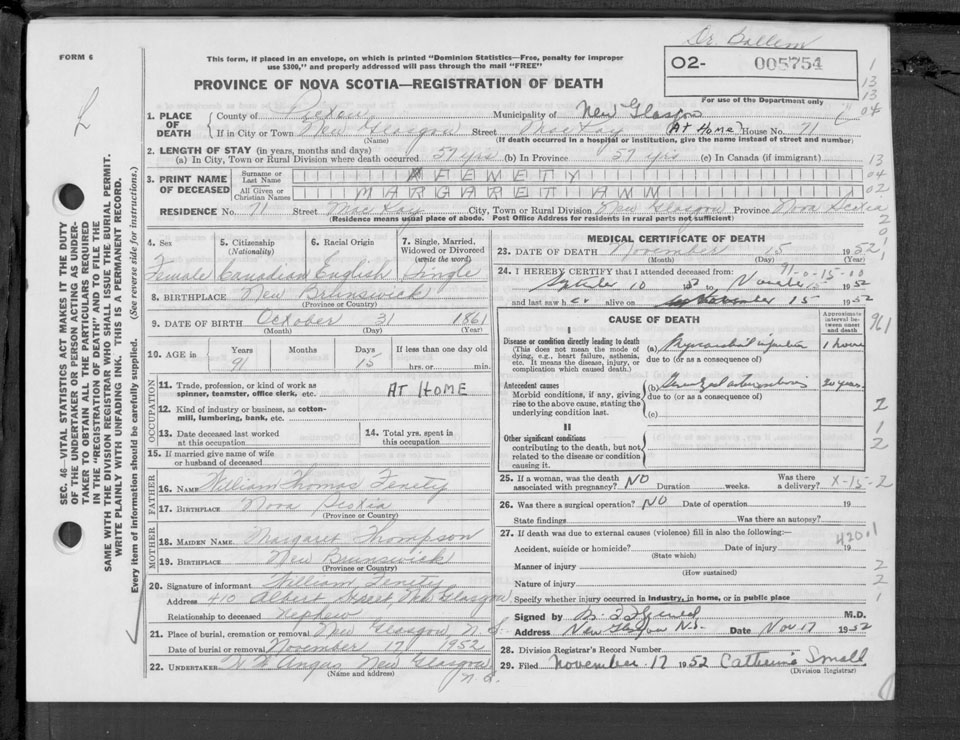 Dr. Ballem
FORM 6
This form, if placed in an envelope, on which is printed "Dominion Statistics—Free, penalty for improper
use $300," and properly addressed will pass through the mail "FREE"
O2- 005754
PROVINCE OF NOVA SCOTIA—REGISTRATION OF DEATH
For use of the Department only
1. PLACE OF DEATH
County of Pictou Municipality of New Glasgow
If in City or Town New Glasgow Street MacKay (At Home) House No. 71
(Name) (If death occurred in hospital or institution, give name instead of street and number)
2. LENGTH OF STAY (in years, months and days)
(a) In City, Town or Rural Division where death occurred 57 yrs (b) In Province 57 yrs (c) In Canada (if immigrant)
3. PRINT NAME OF DECEASED
Surname or Last Name FENETY
All Given or Christian Names MARGARET ANN
RESIDENCE No. 71 Street MacKay City, Town or Rural Division New Glasgow Province Nova Scotia
(Residence means usual place of abode. Post Office Address for residents in rural parts not sufficient)
4. Sex Female
5. Citizenship (Nationality) Canadian
6. Racial Origin English
7. Single, Married, Widowed or Divorced (write the word) Single
8. BIRTHPLACE New Brunswick
(Province or Country)
9. DATE OF BIRTH October 31 1861
(Month) (Day) (Year)
10. AGE in Years 91 Months Days 15 If less than one day old
hrs. or min.
OCCUPATION
11. Trade, profession, or kind of work as spinner, teamster, office clerk, etc. AT HOME
12. Kind of industry or business, as cotton-mill, lumbering, bank, etc.
13. Date deceased last worked at this occupation
14. Total yrs. spent in this occupation
15. If married give name of wife or husband of deceased
FATHER
16. NAME William Thomas Fenety
17. BIRTHPLACE Nova Scotia
(Province or Country)
MOTHER
18. MAIDEN NAME Margaret Thompson
19. BIRTHPLACE New Brunswick
(Province or Country)
20. Signature of informant William Fenety
Address 410 Albert Street, New Glasgow
Relationship to deceased Nephew
21. Place of burial, cremation or removal New Glasgow N.S.
Date of burial or removal November 17 1952
22. UNDERTAKER Angus, New Glasgow
(Name and address) N.S.
MEDICAL CERTIFICATE OF DEATH
23. DATE OF DEATH November 15 1952
(Month) (Day)
91-0-15-00
24. I HEREBY CERTIFY that I attended deceased from:
10 1952 to 15 1952
and last saw her alive on November 15 1952
CAUSE OF DEATH
Approximate interval between onset and death
I
Disease or condition directly leading to death
(This does not mean the mode of dying, e.g., heart failure, asthenia, etc. It means the disease, injury, or complication which caused death.)
(a) Myocardial 1 hour
due to (or as a consequence of)
Antecedent causes
Morbid conditions, if any, giving rise to the above cause, stating the underlying condition last.
(b) 20 years.
due to (or as a consequence of)
(c)
II
Other significant conditions
contributing to the death, but not related to the disease or condition causing it.
25. If a woman, was the death associated with pregnancy? NO Duration weeks. Was there a delivery? X-15-2
26. Was there a surgical operation? NO Date of operation 19
State findings Was there an autopsy?
27. If death was due to external causes (violence) fill in also the following:— 420.1
Accident, suicide or homicide? Date of injury 19
(State which)
Manner of injury
(How sustained)
Nature of injury
Specify whether injury occurred in industry, in home, or in public place
Signed by M.D.
Address New Glasgow N.S. Date Nov 17 1952
28. Division Registrar's Record Number
29. Filed November 17 1952 Catherine Small
(Division Registrar)
SEC. 46—VITAL STATISTICS ACT MAKES IT THE DUTY
OF THE UNDERTAKER OR PERSON ACTING AS UNDER-
TAKER TO OBTAIN ALL THE PARTICULARS REQUIRED
IN THE "REGISTRATION OF DEATH" AND TO FILE THE
SAME WITH THE DIVISION REGISTRAR WHO SHALL ISSUE THE BURIAL PERMIT.
WRITE PLAINLY WITH UNFADING INK. THIS IS A PERMANENT RECORD.
Every item of information should be carefully supplied. (See reverse side for instructions.)
1
13
13
04
13
04
02
2
0
1
961
2
1
2
2
2
1